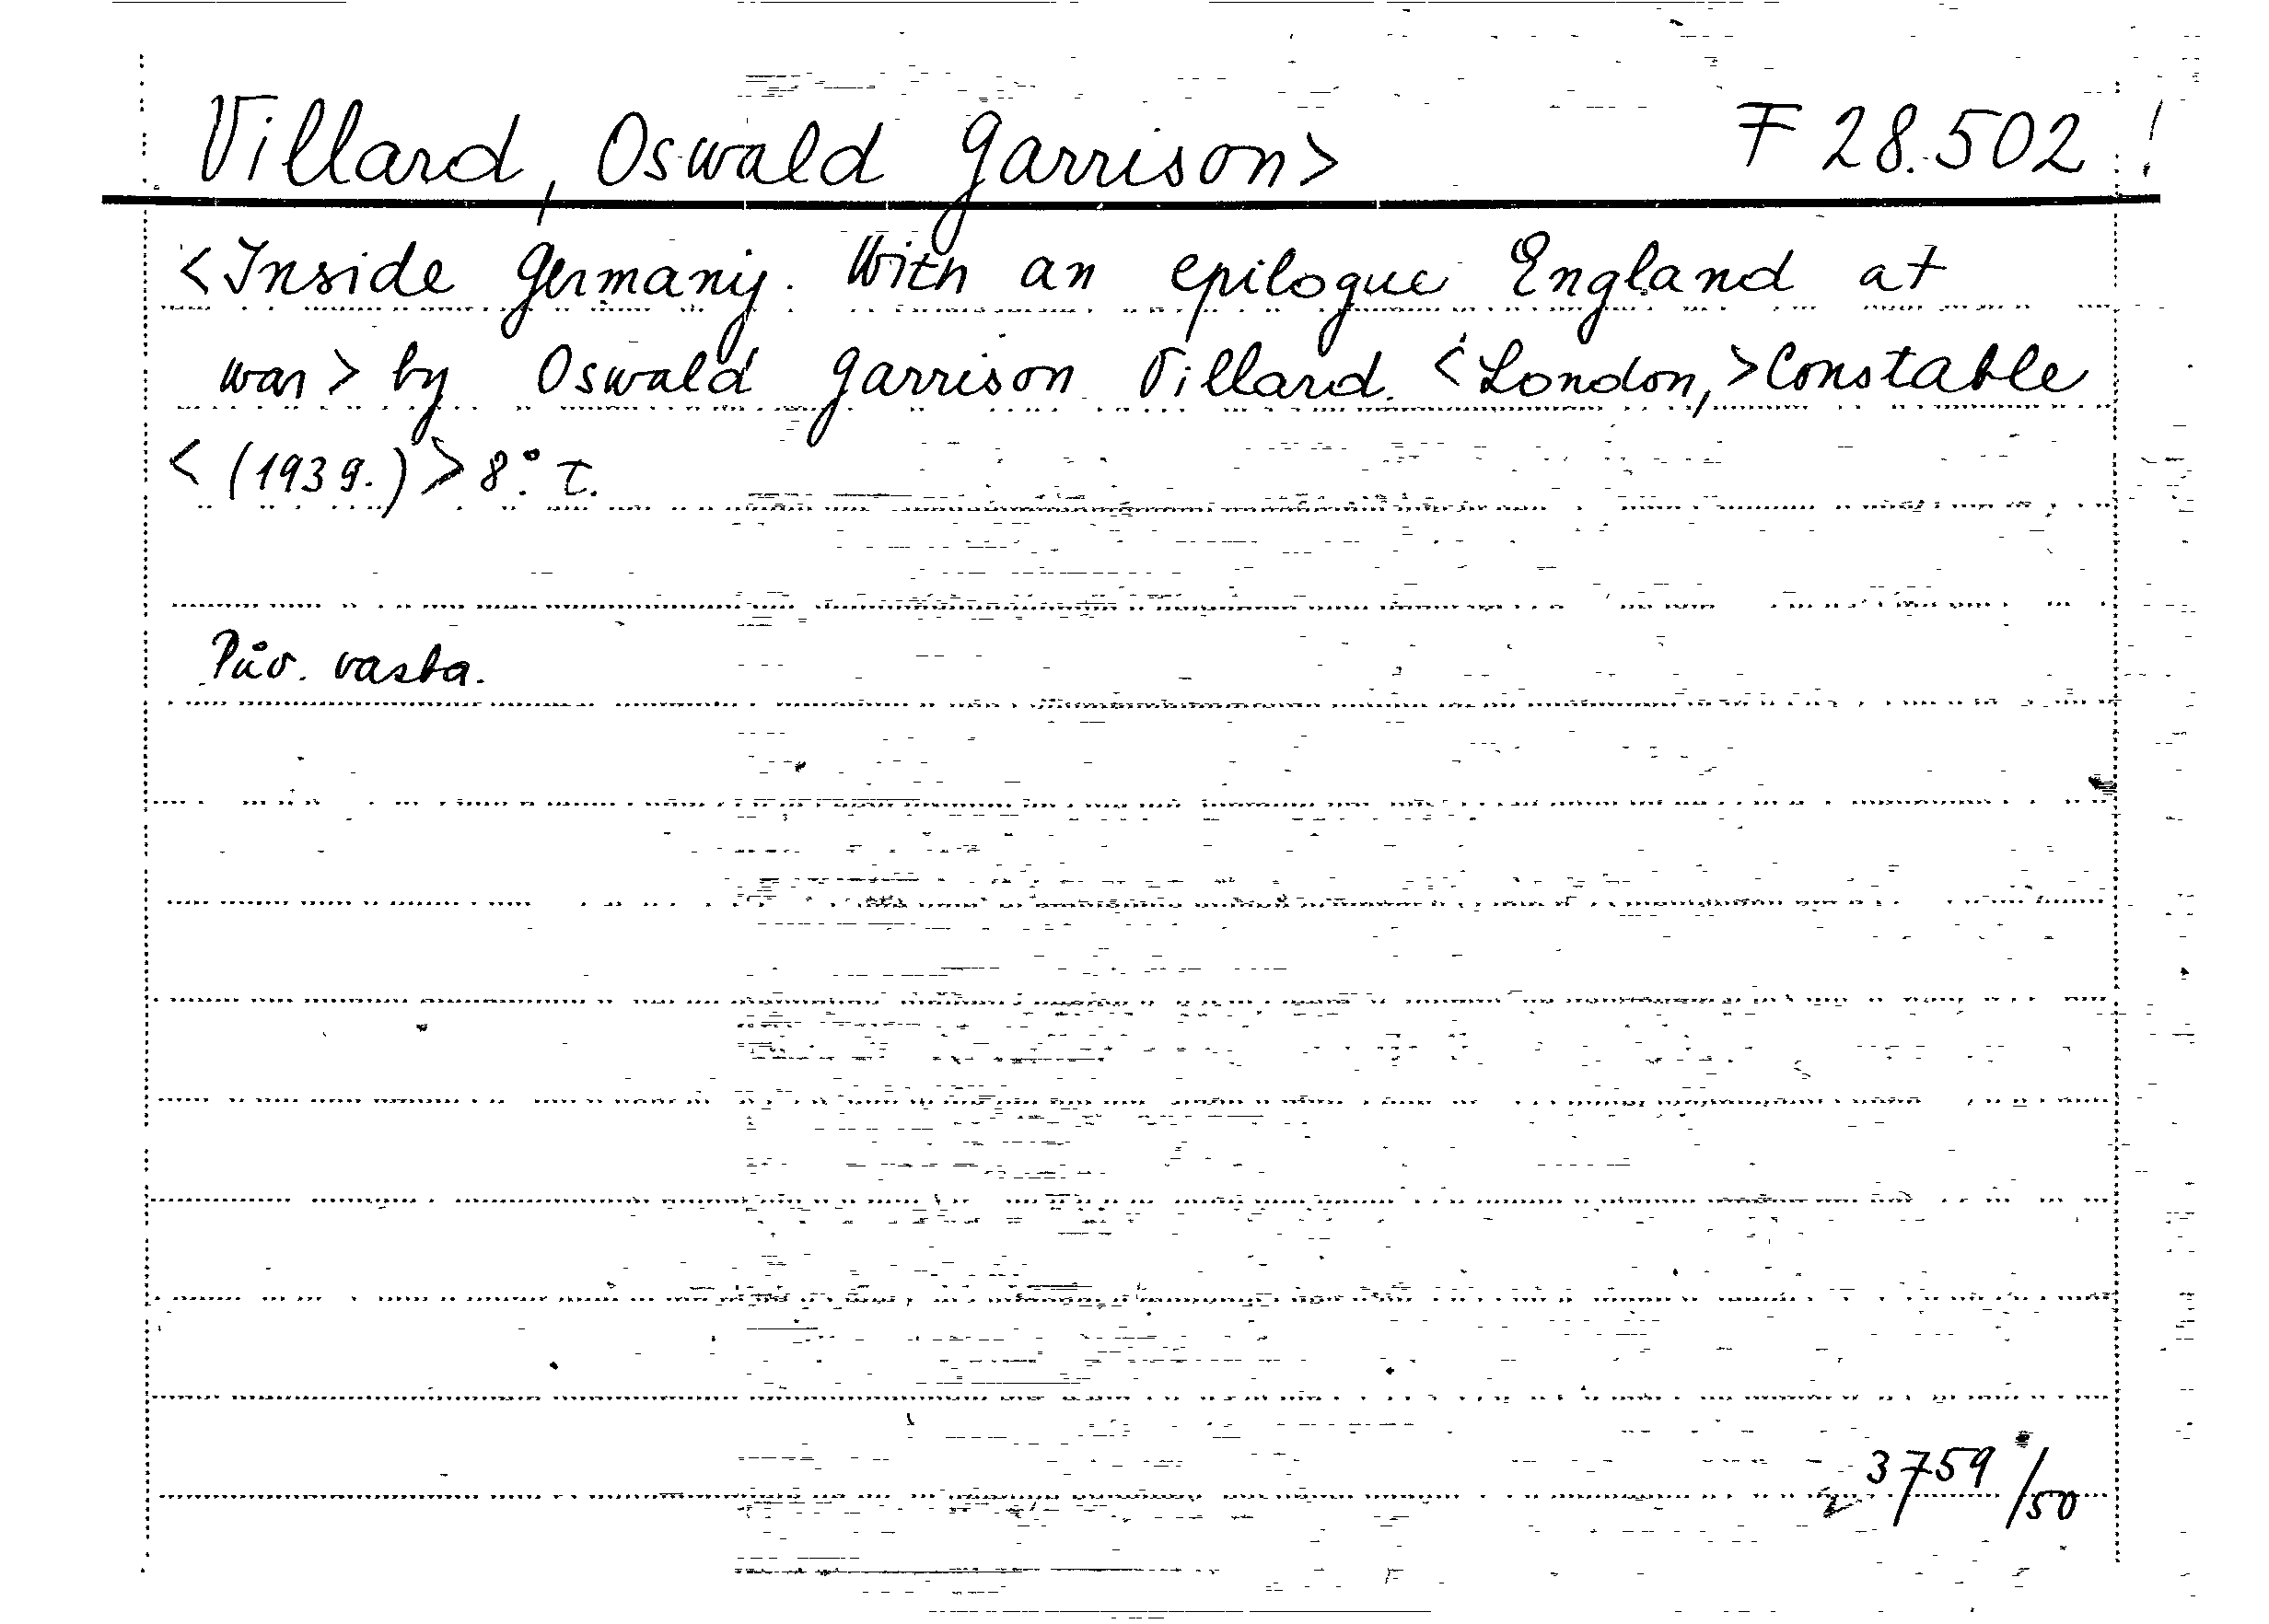 Villard, Oswald Garrison> F 28.502!
<Inside Germany. With an epilogue England at
war> by Oswald Garrison Villard. <London,> Constable
<(1939.)> 8.° T.
Pův. vasba.
3759/50